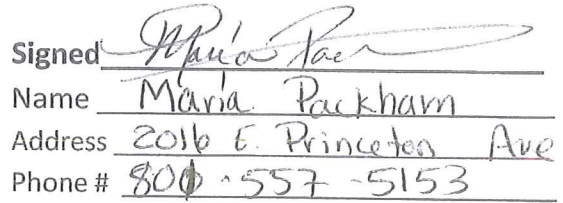 Signed Maria Pac
Name Maria Packham
Address 2016 E. Princeton Ave
Phone # 801-557-5153